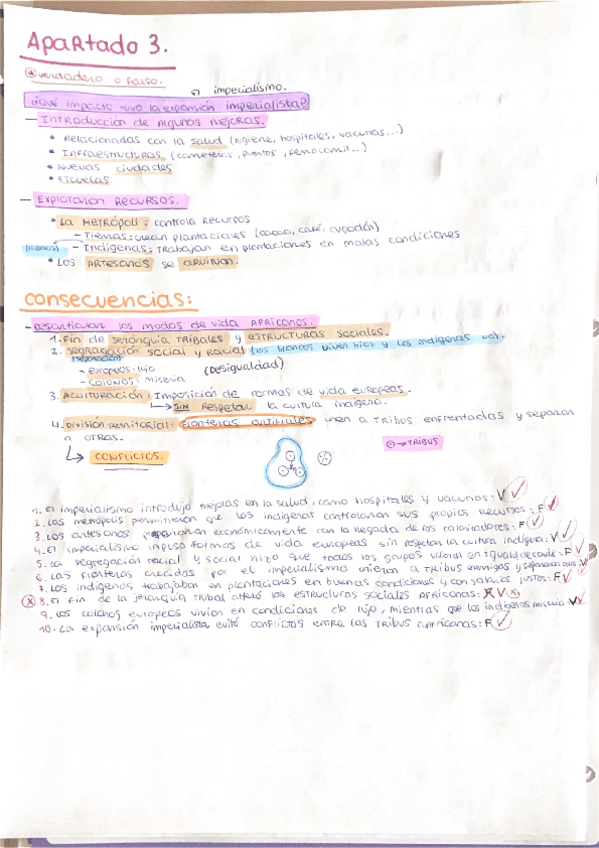 Apartado 3.
verdadero o Falso.
imperialismo.
¿Qué impacto tuvo la expansión imperialista?
- INTRODUCCIÓN de algunas mejoras.
• Relacionadas con la salud (higiene, hospitales, vacunas...)
• INFRAESTRUCTURAS (carreteras, puertos, ferrocarril...)
• Nuevas ciudades
• Escuelas
- Explotaron RECURSOS.
• La METRÓPOLI: controla RECURSOS
- Tierras: crean plantaciones (cacao, café, algodón)
(colonos) - Indígenas: Trabajan en plantaciones en malas condiciones
• LOS ARTESANOS se ARUINAN.
Consecuencias:
- los modos de vida AFRICANOS.
1. Fin de jerarquía tribales y estructuras sociales.
2. segregación social y racial (los blancos viven bien y los indígenas no).
separación
- europeos: lujo (Desigualdad)
- colonos: miseria
3. Aculturación: Imposición de formas de vida europeas.
SIN Respetar la cultura indígena.
4. División territorial: Fronteras artificiales unen a TRIBUS enfrentadas y separan
a otras.
CONFLICTOS.
→ TRIBUS
1. El imperialismo introdujo mejoras en la salud, como hospitales y vacunas: V
2. Las metrópolis permitieron que los indígenas controlaran sus propios recursos: F
3. Los artesanos económicamente con la llegada de los colonizadores: F
4. El imperialismo impuso formas de vida europeas sin respetar la cultura indígena: V
5. La segregación racial y social hizo que todos los grupos vivieran en igualdad: F
6. Las fronteras creadas por el imperialismo unieron a tribus enemigas y separaron otras V
7. Los indígenas trabajaban en plantaciones en buenas condiciones y con salarios justos: F
8. El fin de la jerarquía tribal alteró las estructuras sociales africanas: V
9. Los colonos europeos vivían en condiciones de lujo, mientras que los indígenas miseria V
10. La expansión imperialista evitó conflictos entre las tribus africanas: F